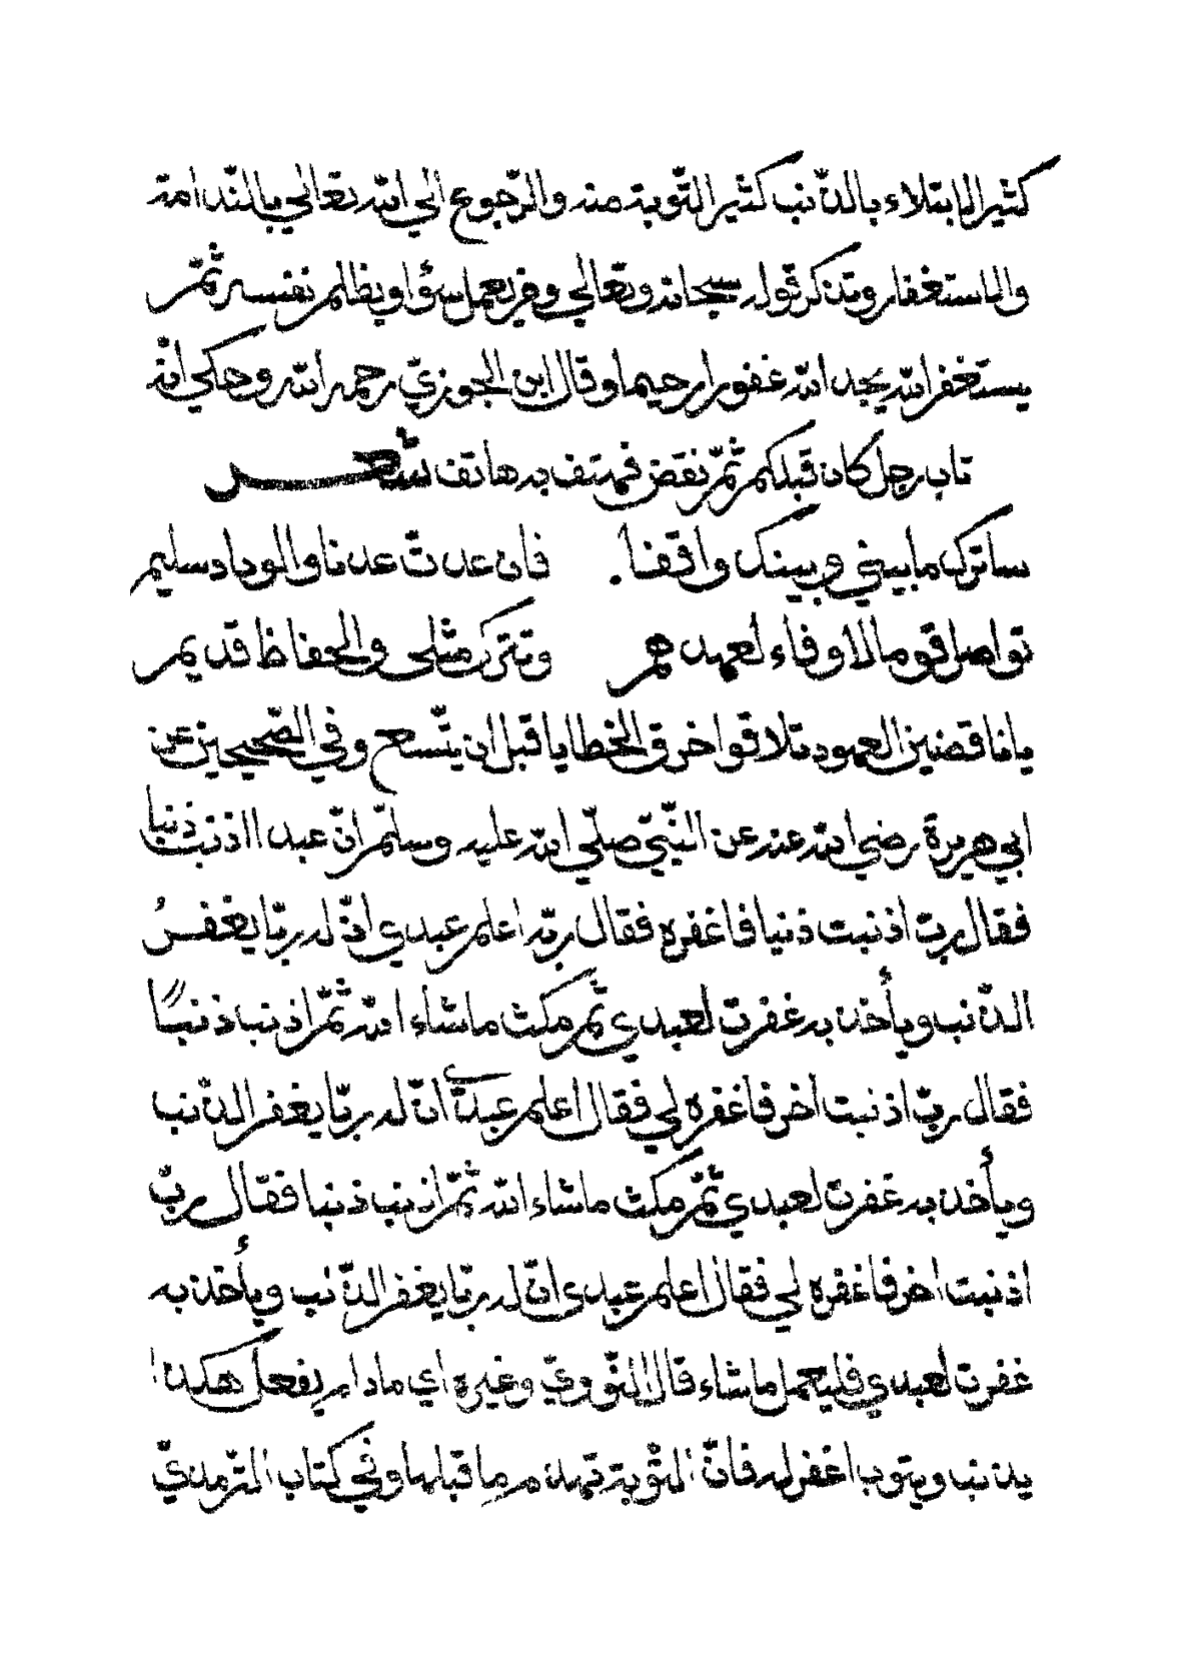 كثير الابتلاء بالذّنب كثير التّوبة منه والرّجوع الي الله تعالي بالنّدامة
والاستغفار وتذكر قوله سبحانه وتعالي ومن يعمل سؤا او يظلم نفسه ثمّ
يستغفر الله يجد الله غفورا رحيما وقال ابن الجوزيّ رحمه الله وحكي انّه
تاب رجل كان قبلكم ثمّ نقض فهتف به هاتف شعر
ساترك ما بيني وبينك واقفا . فان عدت عدنا والوداد سليم
تواصل قوما لا وفاء لعهدهم وتترك مثلي والحفاظ قديم
يا ناقضين العهود تلاقوا خرق الخطايا قبل ان يتّسع وفي الصّحيحين عن
ابي هريرة رضي الله عنه عن النّبيّ صلّي الله عليه وسلّم انّ عبدا اذنب ذنبا
فقال ربّ اذنبت ذنبا فاغفره فقال ربّه اعلم عبدي انّ له ربّا يغفرُ
الذّنب ويأخذ به غفرت لعبدي ثمّ مكث ماشاء الله ثمّ اذنب ذنبًا
فقال ربّ اذنبت اخر فاغفره لي فقال اعلم عبدي انّ له ربّا يغفر الذّنب
ويأخذ به غفرت لعبدي ثمّ مكث ماشاء الله ثمّ اذنب ذنبا فقال ربّ
اذنبت اخر فاغفره لي فقال اعلم عبدي انّ له ربّا يغفر الذّنب ويأخذ به
غفرت لعبدي فليعمل ماشاء قال النّوويّ وغيره اي مادام يفعل هكذا
يذنب ويتوب اغفر له فانّ التّوبة تهدم ما قبلها وفي كتاب التّرمذيّ